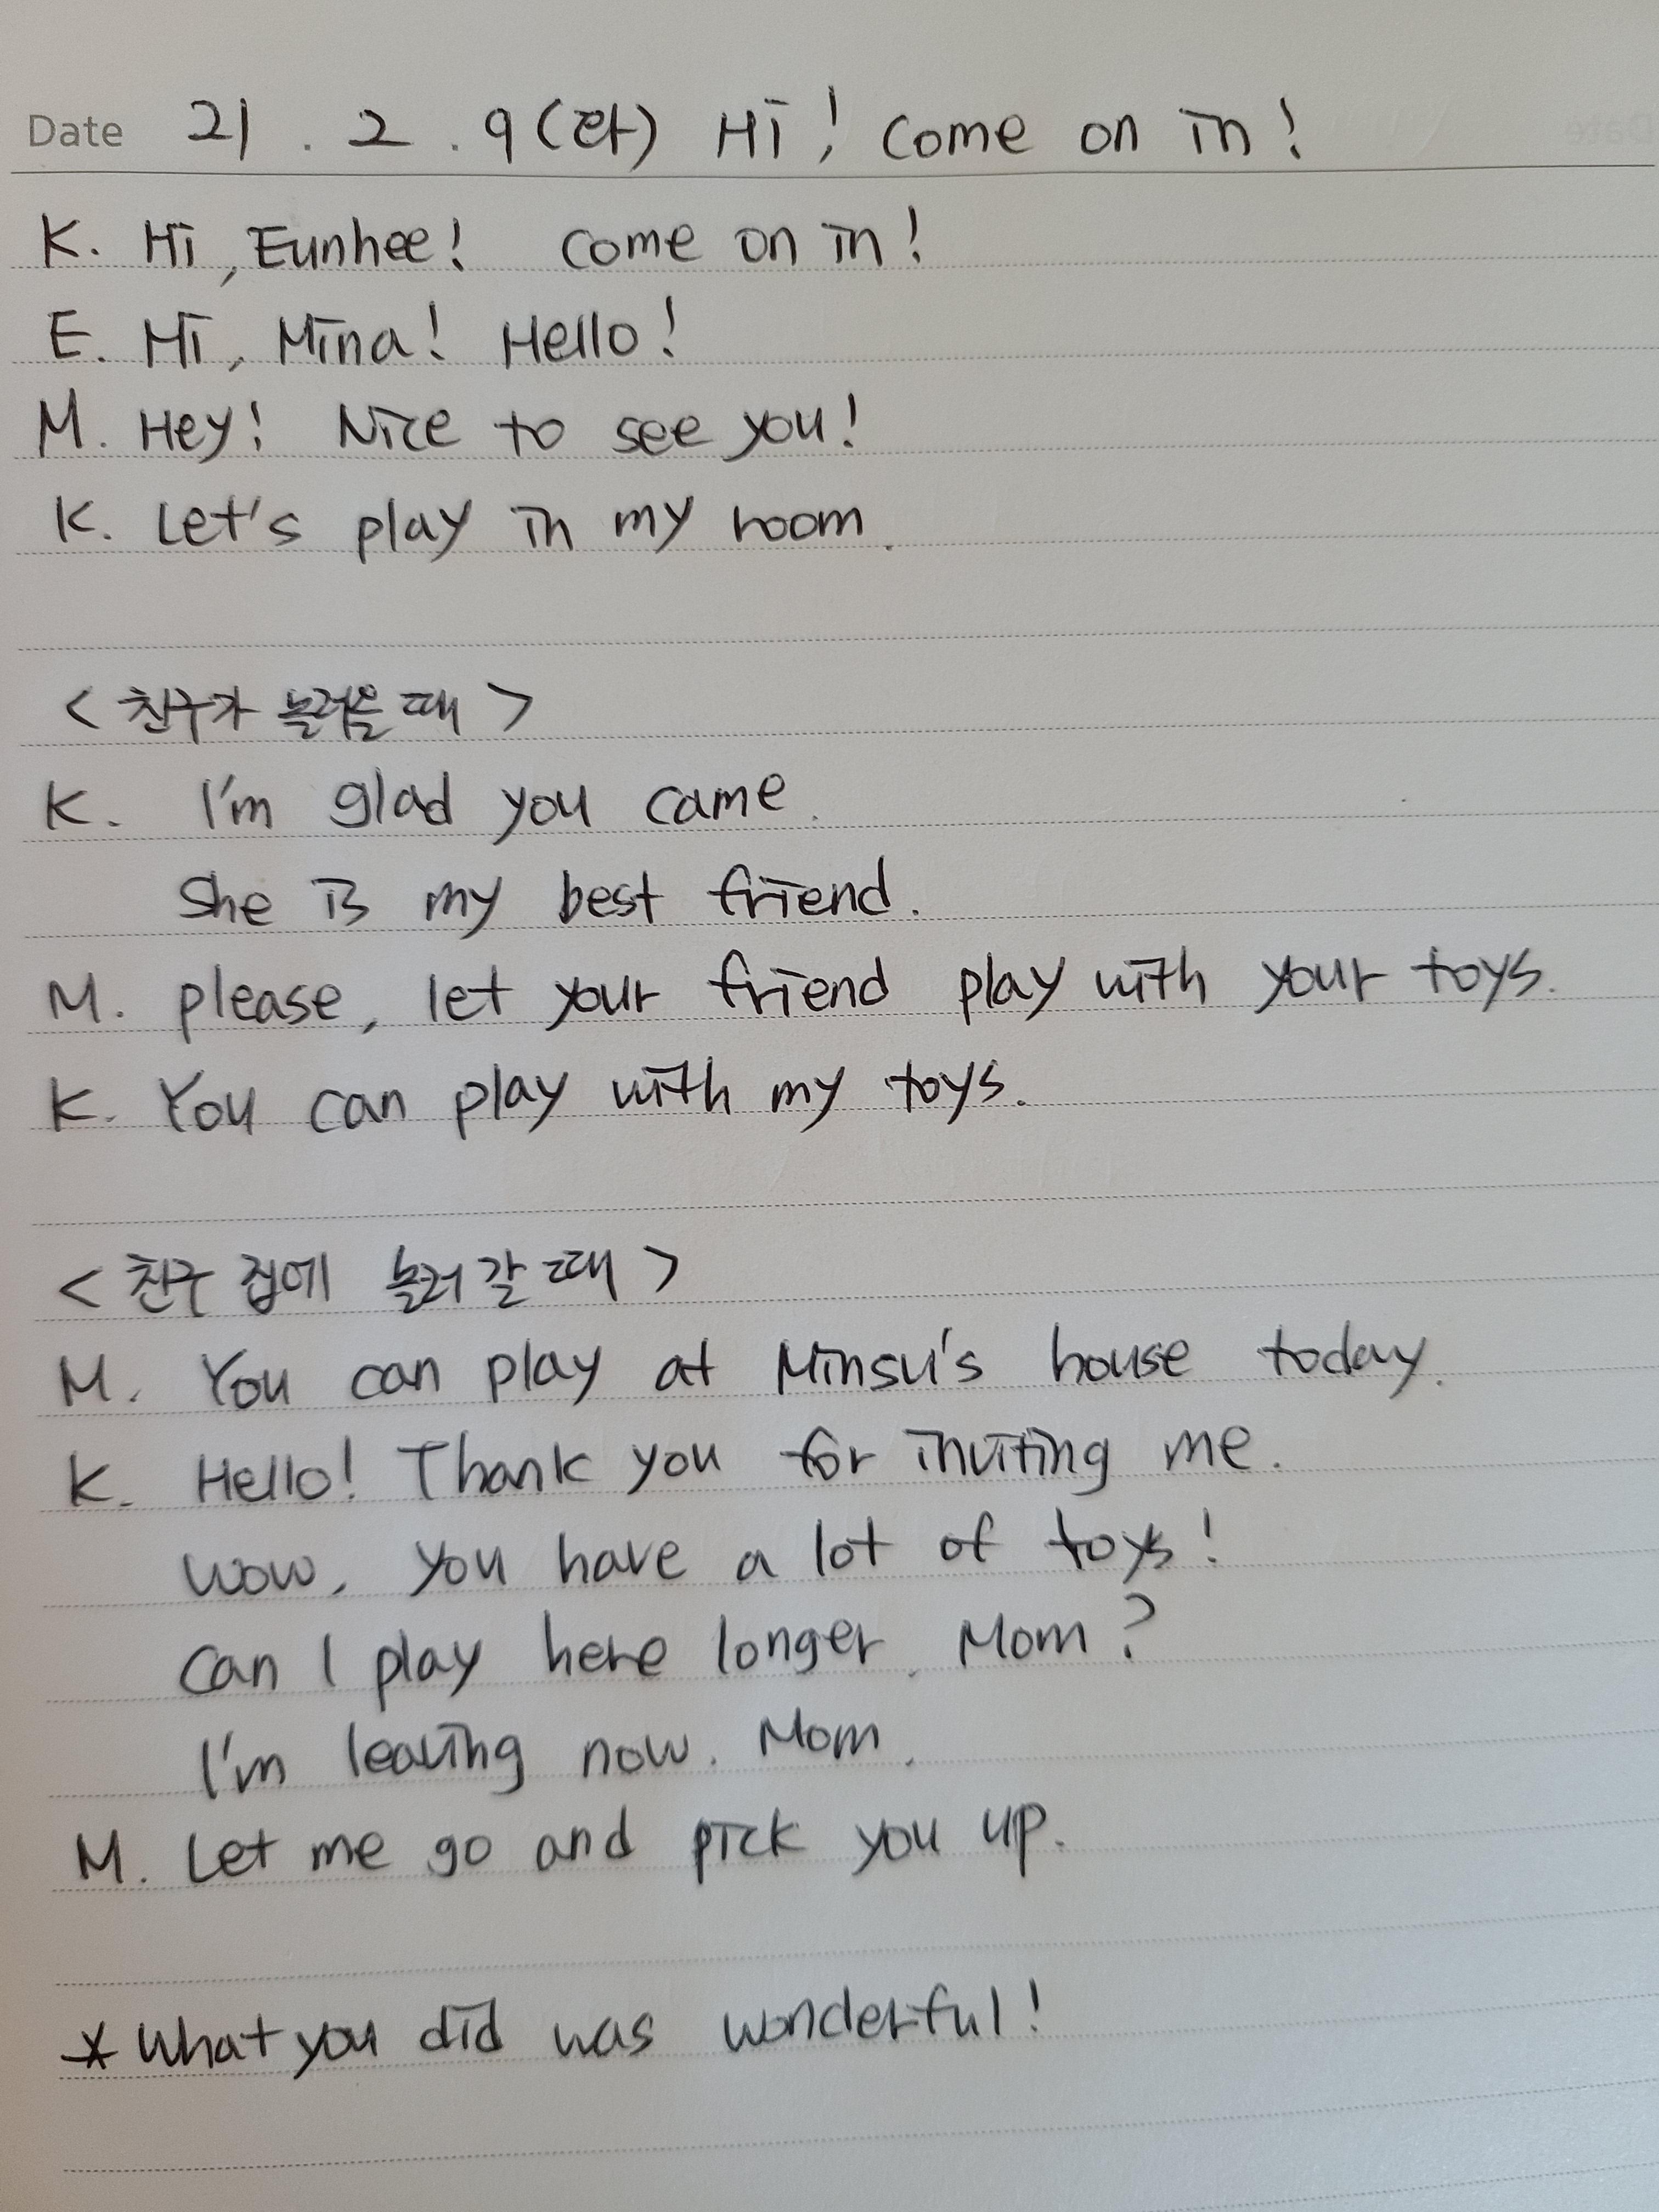 Date 21 . 2 . 9 (화) Hi! Come on in!
K. Hi, Eunhee! Come on in!
E. Hi, Mina! Hello!
M. Hey! Nice to see you!
K. Let's play in my room.
< 친구가 놀러올 때 >
K. I'm glad you came.
She is my best friend.
M. please, let your friend play with your toys.
K. You can play with my toys.
< 친구 집에 놀러 갈 때 >
M. You can play at Minsu's house today.
K. Hello! Thank you for inviting me.
wow, you have a lot of toys!
Can I play here longer, Mom?
I'm leaving now. Mom.
M. Let me go and pick you up.
* What you did was wonderful!